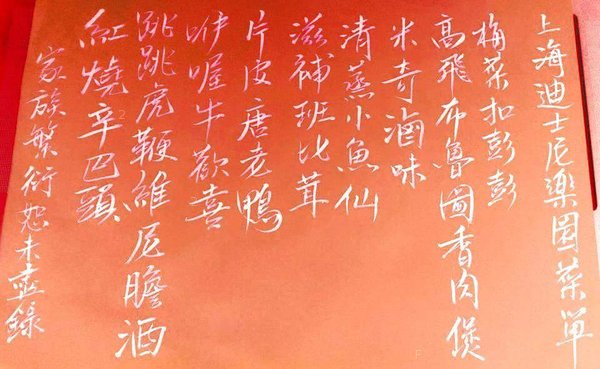 上海迪士尼樂園菜單
梅菜扣彭彭
高飛布魯圖香肉煲
米奇滷味
清蒸小魚仙
滋補班比茸
片皮唐老鴨
咿喔牛歡喜
跳跳虎鞭維尼膽酒
紅燒辛巴頭
家族繁衍恕未盡錄